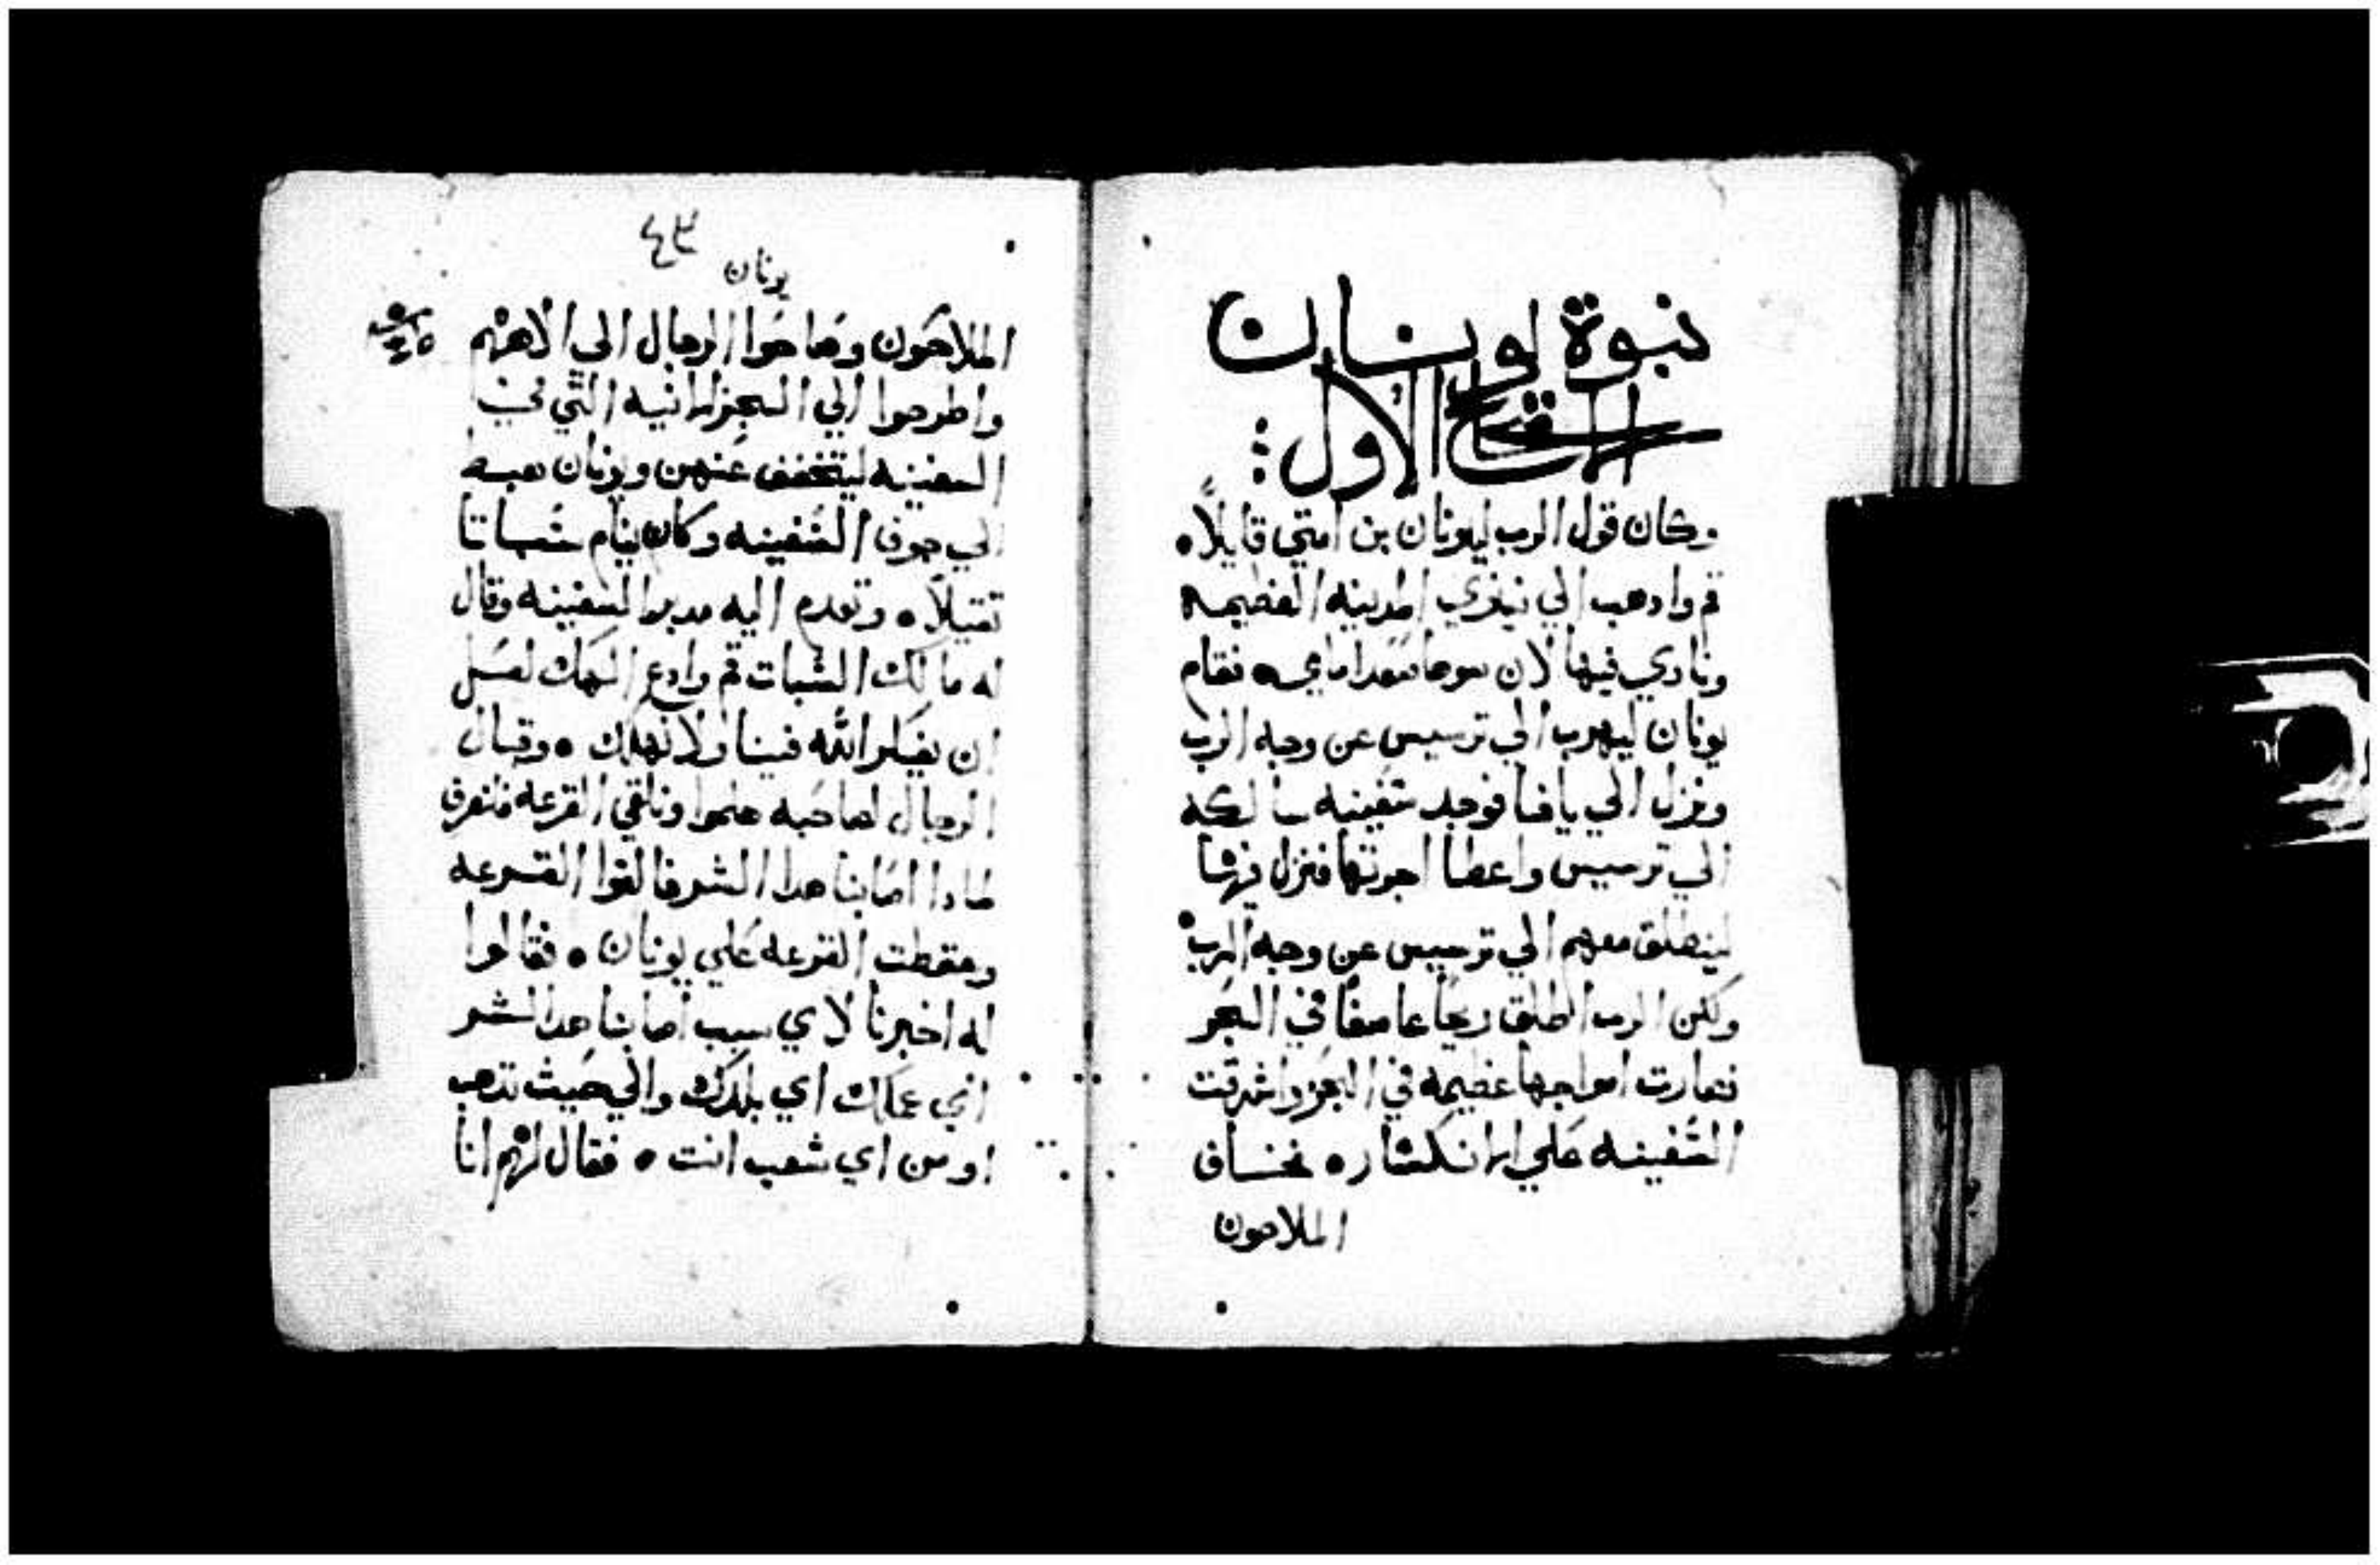 نبوة يونان
الاصحاح الاول
وكان قول الرب ليونان بن امتي قايلاً
قم وادهب الي نينوي المدينه العظيمه
ونادي فيها لان سوها صعد امامي فقام
يونان ليهرب الي ترسيس عن وجه الرب
ونزل الي يافا فوجد سفينه سالكه
الي ترسيس واعطا اجرتها فنزل فيها
لينطلق معهم الي ترسيس عن وجه الرب
ولكن الرب اطلق ريحاً عاصفاً في البحر
فصارت امواجها عظيمه في البحر واشرقت
السفينه علي الانكسار فخاف
الملاحون
٤٣
يونان
الملاحون وصاحوا الرجال الي الاههم
واطرحوا الي البحر الانيه التي في
السفينه ليتخفف عنهن ويونان هبط
الي جوف السفينه وكان ينام سباتا
تقيلاً وتقدم اليه مدبر السفينه وقال
له ما لك السبات قم وادع الهك لعسل
ان يفكر الله فينا ولا نهلك وقال
الرجال لصاحبه هلموا ونلقي القرعه فنعرف
لمادا اصابنا هدا الشر فالقوا القرعه
وسقطت القرعه علي يونان فقالوا
له اخبرنا لاي سبب اصابنا هدا الشر
اني عملك اي بلدك والي حيث تدهب
او من اي شعب انت فقال لهم انا